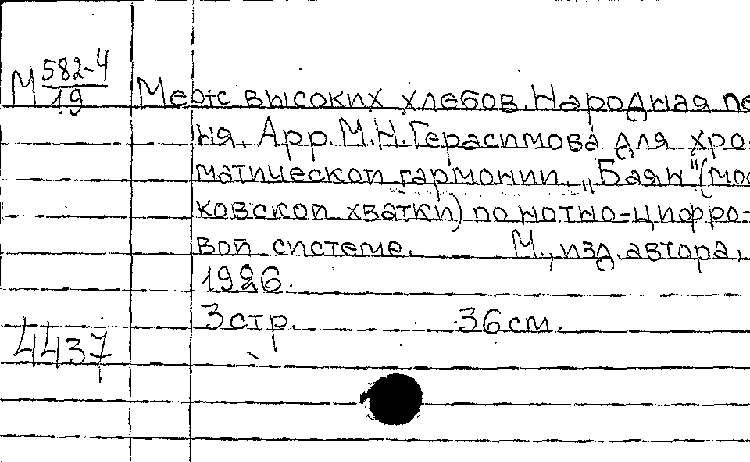 М 582-4
19
Меж высоких хлебов. Народная пе
ня. Арр. М.Н. Герасимова для хро-
матической гармонии „Баян" (мос
ковской хватки) по нотно-цифро-
вой системе. М., изд. автора,
1926.
3 стр. 36 см.
4437